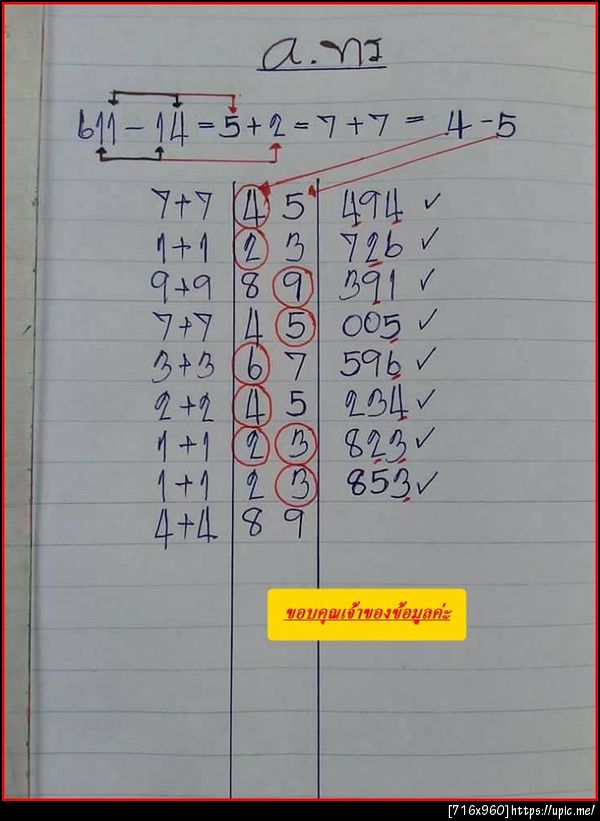 อ.ทร
611 - 14 = 5 + 2 = 7 + 7 = 4 - 5
7+7 4 5 494 ✓
1+1 2 3 726 ✓
9+9 8 9 391 ✓
7+7 4 5 005 ✓
3+3 6 7 596 ✓
2+2 4 5 234 ✓
1+1 2 3 823 ✓
1+1 2 3 853 ✓
4+4 8 9
ขอบคุณเจ้าของข้อมูลค่ะ
[716x960]https://upic.me/